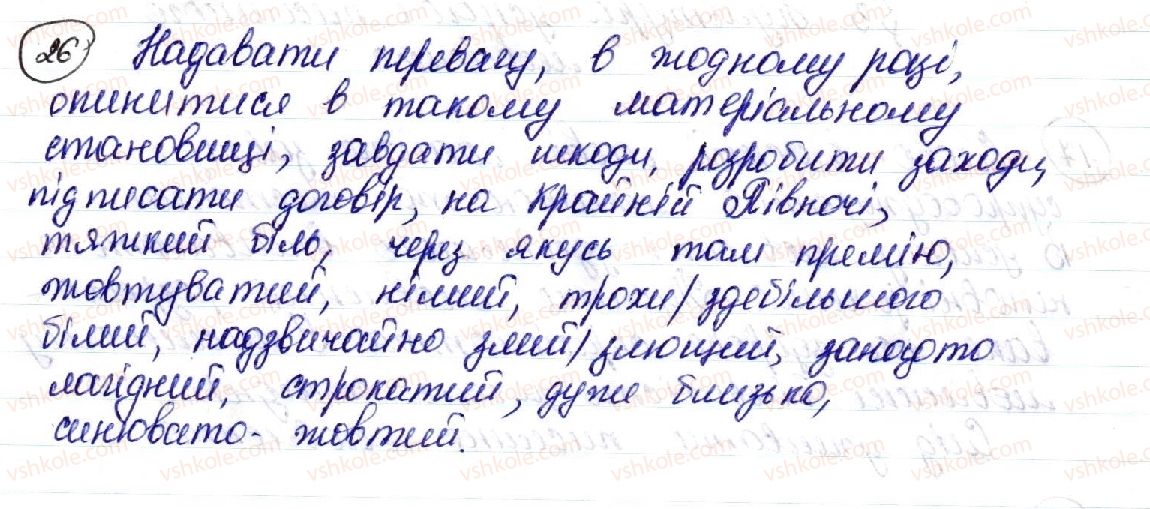 26 Надавати перевагу, в жодному році,
опинитися в такому матеріальному
становищі, завдати шкоди, розробити заходи,
підписати договір, на Крайній Півночі,
тяжкий біль, через якусь там премію,
жовтуватий, німий, трохи/здебільшого
білий, надзвичайно злий/злющий, занадто
лагідний, строкатий, дуже близько,
синювато-жовтий.